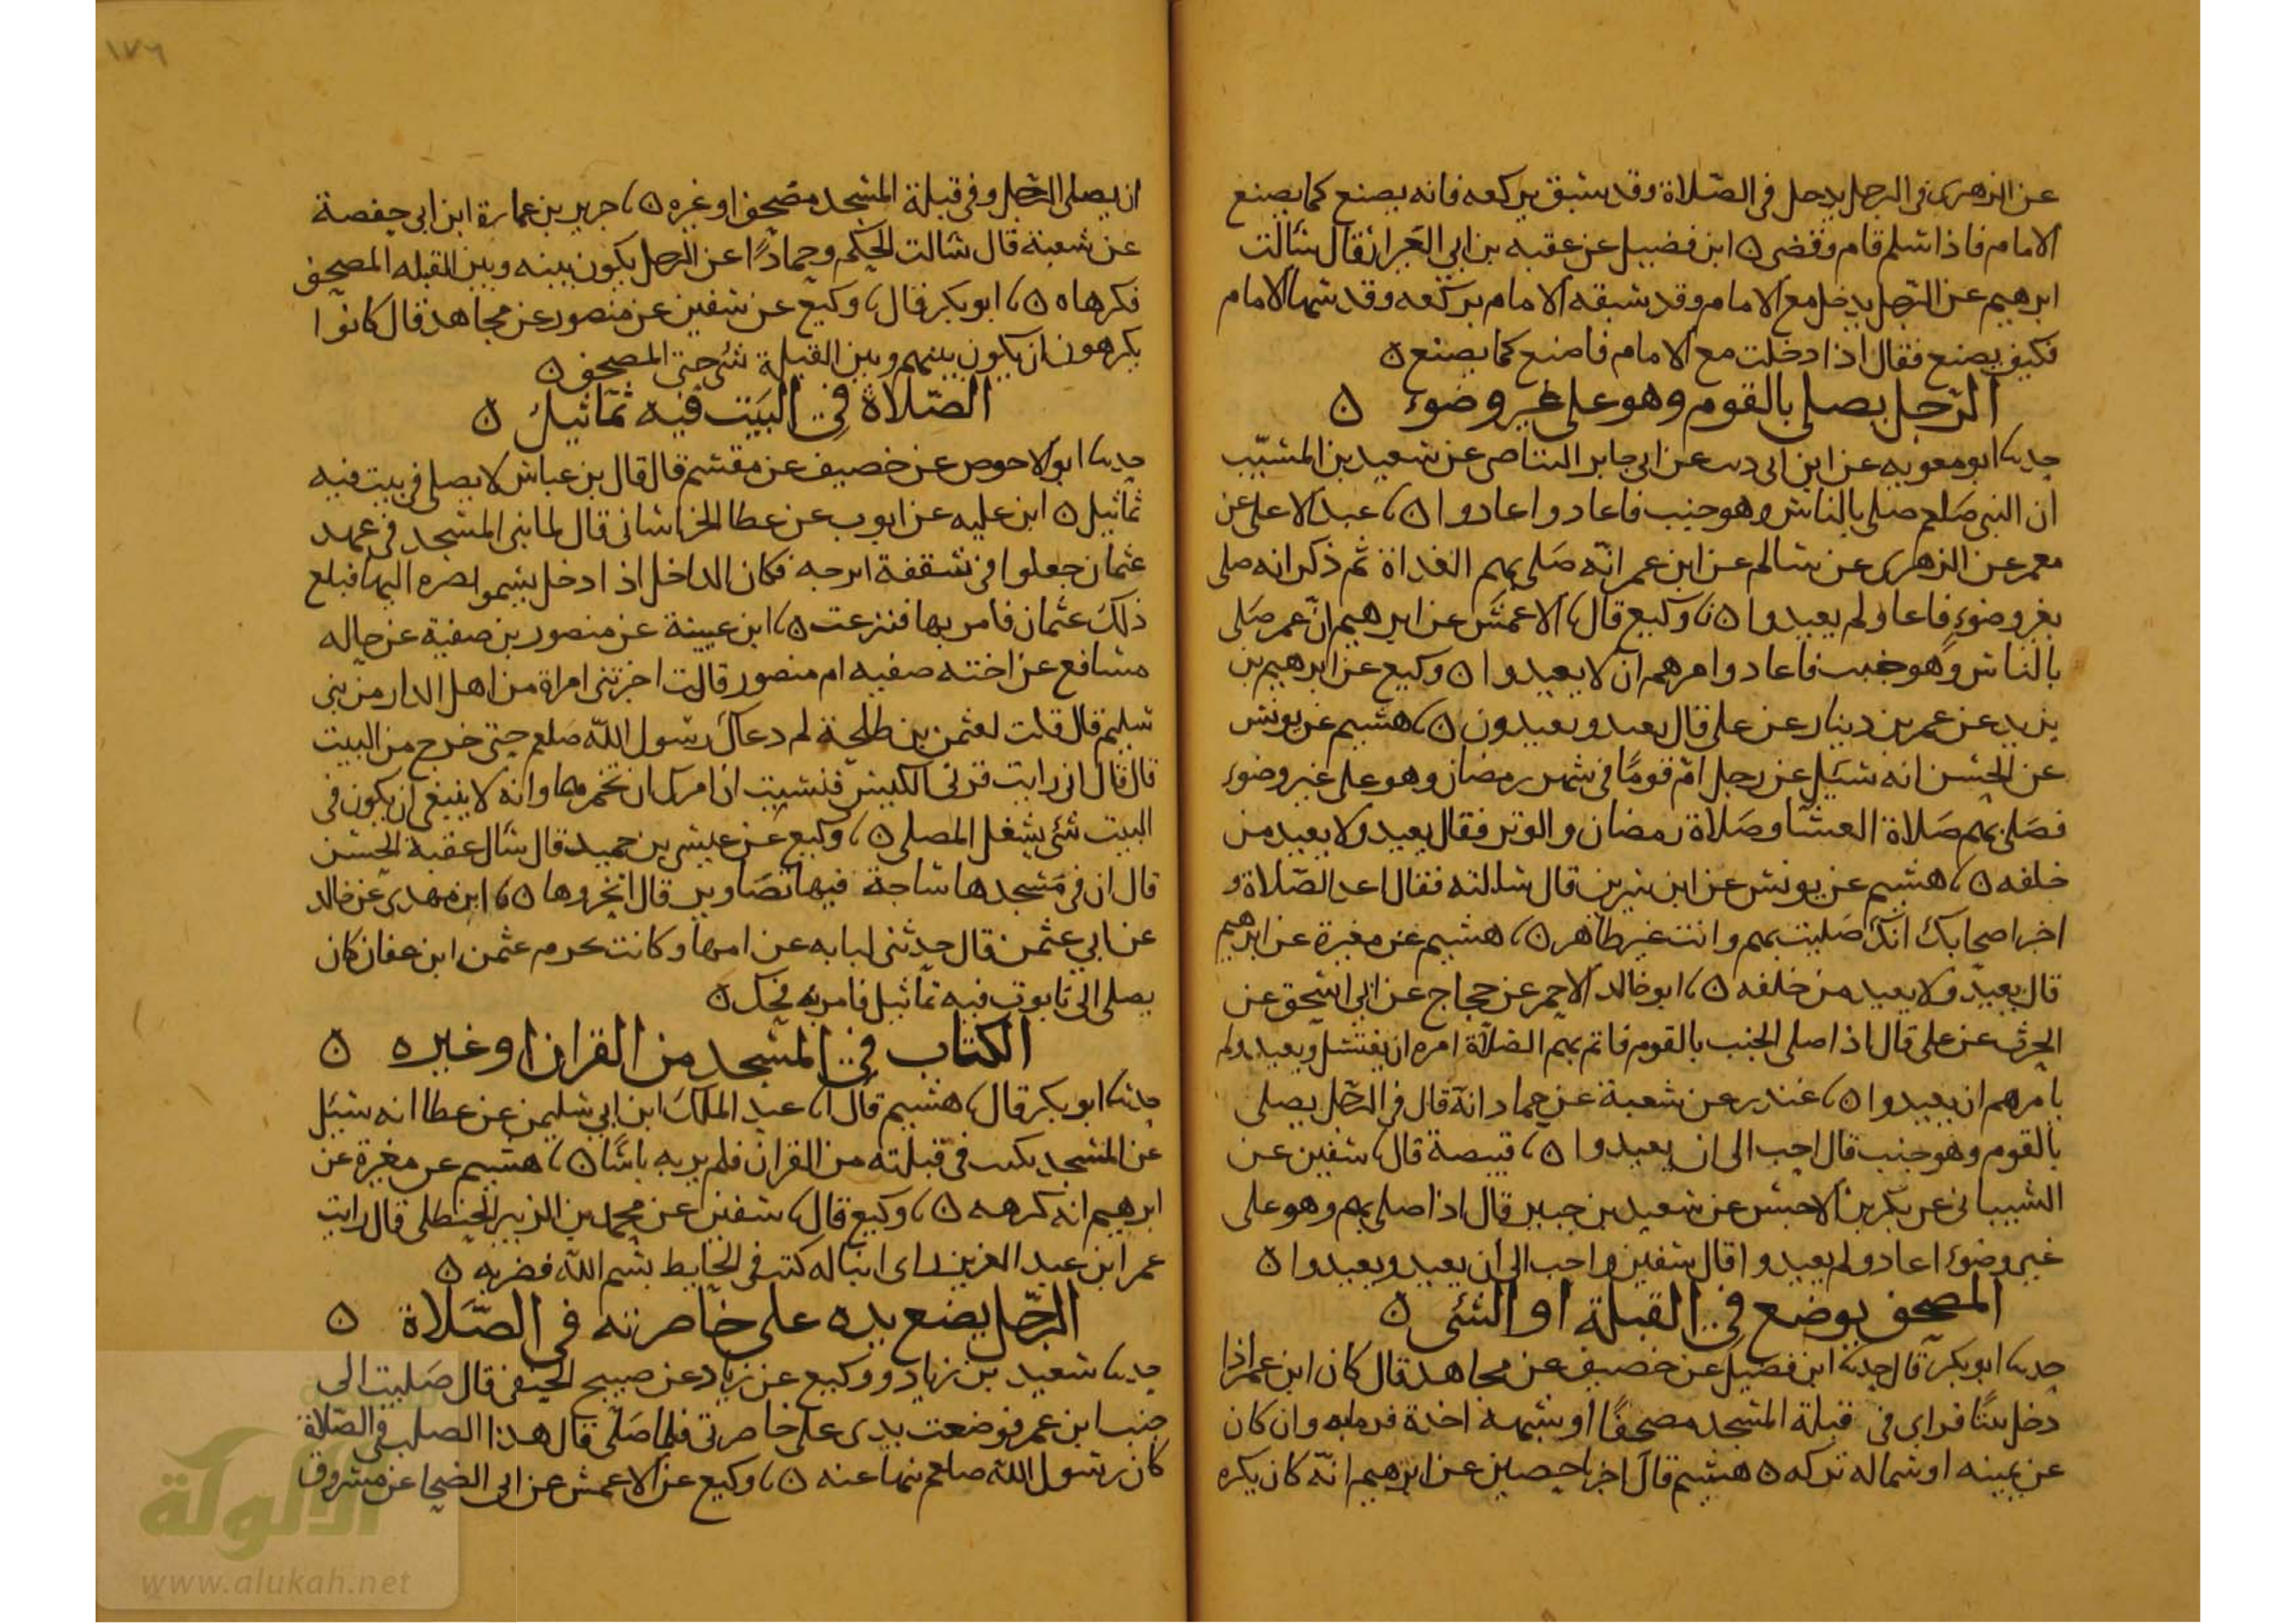 عن الزهرى فى الرجل يدخل فى الصّلاة وقد سبق بركعه فانه يصنع كما يصنع
الامام فاذا سلم قام وقضى ه ابن فضيل عن عقبه بن ابي العَيزار قال سَألت
ابرهيم عن الرّجل يدخل مع الامام وقد سبقه الامام بركعه وقد سها الامام
فكيف يصنع فقال اذا دخلت مع الامام فاصنع كما يصنع ه
الرّجل يصلى بالقوم وهو على غير وضوء ه
حدثنا ابو معويه عن ابن ابى ذئب عن ابى جابر البياضى عن سَعيد بن المسَيّب
ان النبى صَلعم صلى بالناس وهو جنب فاعاد واعادوا ه نا عبد الاعلى عن
معمر عن الزهرى عن سالم عن ابن عمر انّه صَلى بهم الغداة ثم ذكر انه صلى
بغير وضوءٍ فاعاد ولم يعيدوا ه نا وكيع قال نا الاعمش عن ابرهيم انّ عمر صَلى
بالناس وهو جنب فاعاد وامرهم ان لا يعيدوا ه وكيع عن ابرهيم بن
يزيد عن عمر بن دينار عن على قال يعيد ويعيدون ه نا هشيم عن يونس
عن الحسَن انه سُئل عن رجل امّ قومًا فى شهر رمضان وهو على غير وضوء
فصَلى بهم صَلاة العشا وصَلاة رمضان والوتر فقال يعيد ولا يعيد من
خلفه ه نا هشيم عن يونس عن ابن سيرين قال سالته فقال اعد الصّلاة و
اخبر اصحابك انّك صَليت بهم وانت غير طاهر ه نا هشيم عن مغيرة عن ابرهيم
قال يعيد ولا يعيد من خلفه ه نا ابو خالد الاحمر عن حجاج عن ابى اسحق عن
الحرث عن على قال اذا صلى الجنب بالقوم فاتم بهم الصّلاة امره ان يغتسل ويعيد ولم
يامرهم ان يعيدوا ه نا غندر عن شعبة عن حماد انّه قال فى الرّجل يصلى
بالقوم وهو جنب قال احب الى ان يعيدوا ه نا قبيصة قال نا سفين عن
الشيبانى عن بكر بن الاخنس عن سَعيد بن جبير قال اذا صلى بهم وهو على
غير وضوء اعاد ولم يعيدوا قال سفين واحب الى ان يعيد ويعيدوا ه
المصحف يوضع فى القبلة او الشئى ه
حدثنا ابو بكر قال حدثنا ابن فضيل عن خصيف عن مجاهد قال كان ابن عمر اذا
دخل بيتًا فراى فى قبلة المسجد مصحفًا او شبهه اخذه فرمابه وان كان
عن يمينه او شماله تركه ه هشيم قال اخبرنا حصين عن ابرهيم انّه كان يكره
ان يصلى الرّجل وفى قبلة المسجد مصحف او غيره ه نا جرير بن عمارة ابن ابى حفصة
عن شعبة قال سَالت الحكم وحمادًا عن الرجل يكون بينه وبين القبله المصحف
فكرهاه ه نا ابو بكر قال نا وكيع عن سفين عن منصور عن مجاهد قال كانوا
يكرهون ان يكون بينهم وبين القبلة شئ حتى المصحف ه
الصّلاة فى البَيت فيه تماثيل ه
حدثنا ابو الاحوص عن خصيف عن مقسَم قال قال بن عباس لا يصلى فى بيت فيه
تماثيل ه ابن عليه عن ايوب عن عطا الخراسانى قال لما بنى المسجد فى عهد
عثمان جعلوا فى سَقفه اترجه فكان الداخل اذا دخل يسموا بصره اليها فبلغ
ذلك عثمان فامر بها فنزعت ه نا ابن عيينة عن منصور بن صفية عن خاله
مسافع عن اخته صفيه ام منصور قالت اخبرتنى امراة من اهل الدار من بنى
سليم قال قلت لعثمن بن طلحة لم دعاك رسول الله صَلعم حتى خرج من البيت
قال قال انى رايت قرنى الكبش فنسيت ان امرك ان تخمرهما وانه لا ينبغى ان يكون فى
البيت شئ يشغل المصلى ه نا وكيع عن عيسى بن حميد قال سَأل عقبة الحسَن
قال ان فى مَسجدها ساجة فيها تصَاوير قال انخروها ه نا ابن مهدى عن خالد
عن ابي عثمن قال حدثنى لبابه عن امها وكانت تخدم عثمن ابن عفان كان
يصلى الى تابوت فيه تماثيل فامر به فحك ه
الكتاب فى المسجد من القران او غيره ه
حدثنا ابو بكر قال نا هشيم قال انا عبد الملك ابن ابى سليمن عن عطا انه سئل
عن المسجد يكتب فى قبلته من القران فلم ير به باسًا ه نا هشيم عن مغيرة عن
ابرهيم انه كرهه ه نا وكيع قال نا سفين عن محمد بن الزبير الحنظلى قال رايت
عمر ابن عبد العزيز راى ابنا له كتب فى الحايط بسم الله فضربه ه
الرّجل يضع يده على خاصرته فى الصّلاة ه
حدثنا سَعيد بن زياد ووكيع عن زياد عن صبيح الحنفى قال صَليت الى
جنب ابن عمر فوضعت يدى على خاصرتى فلما صَلى قال هذا الصلب فى الصّلاة
كان رسول الله صلعم نهى عنه ه نا وكيع عن الاعمش عن ابى الضحا عن مسروق
الألوكة
www.alukah.net